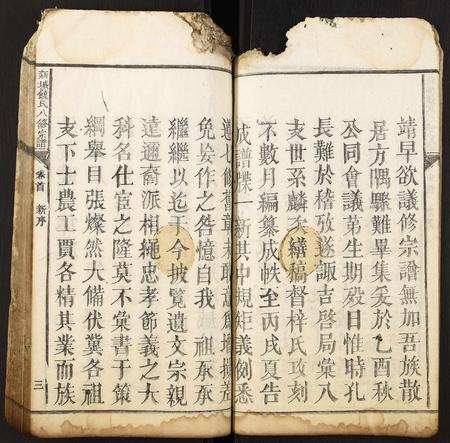 靖早欲議修宗譜無加吾族散
居方隅驟難畢集爰於乙酉秋
公同會議第生期殷日惟時孔
長難於稽攷遂諏吉啓局彙八
支世系麟炙繕稿督梓氏攻刻
不數月編纂成帙至丙戌夏告
成譜牒一新其中規矩義例悉
遵七修舊章未敢意創增損差
免妄作之咎憶自我 祖承承
繼繼以迄于今披覽遺文宗親
遠邇裔派相繩忠孝節義之大
科名仕宦之隆莫不彙書于策
綱舉目張燦然大備伏冀各祖
支下士農工賈各精其業而族
新城饒氏八修宗譜 卷首 新序 三